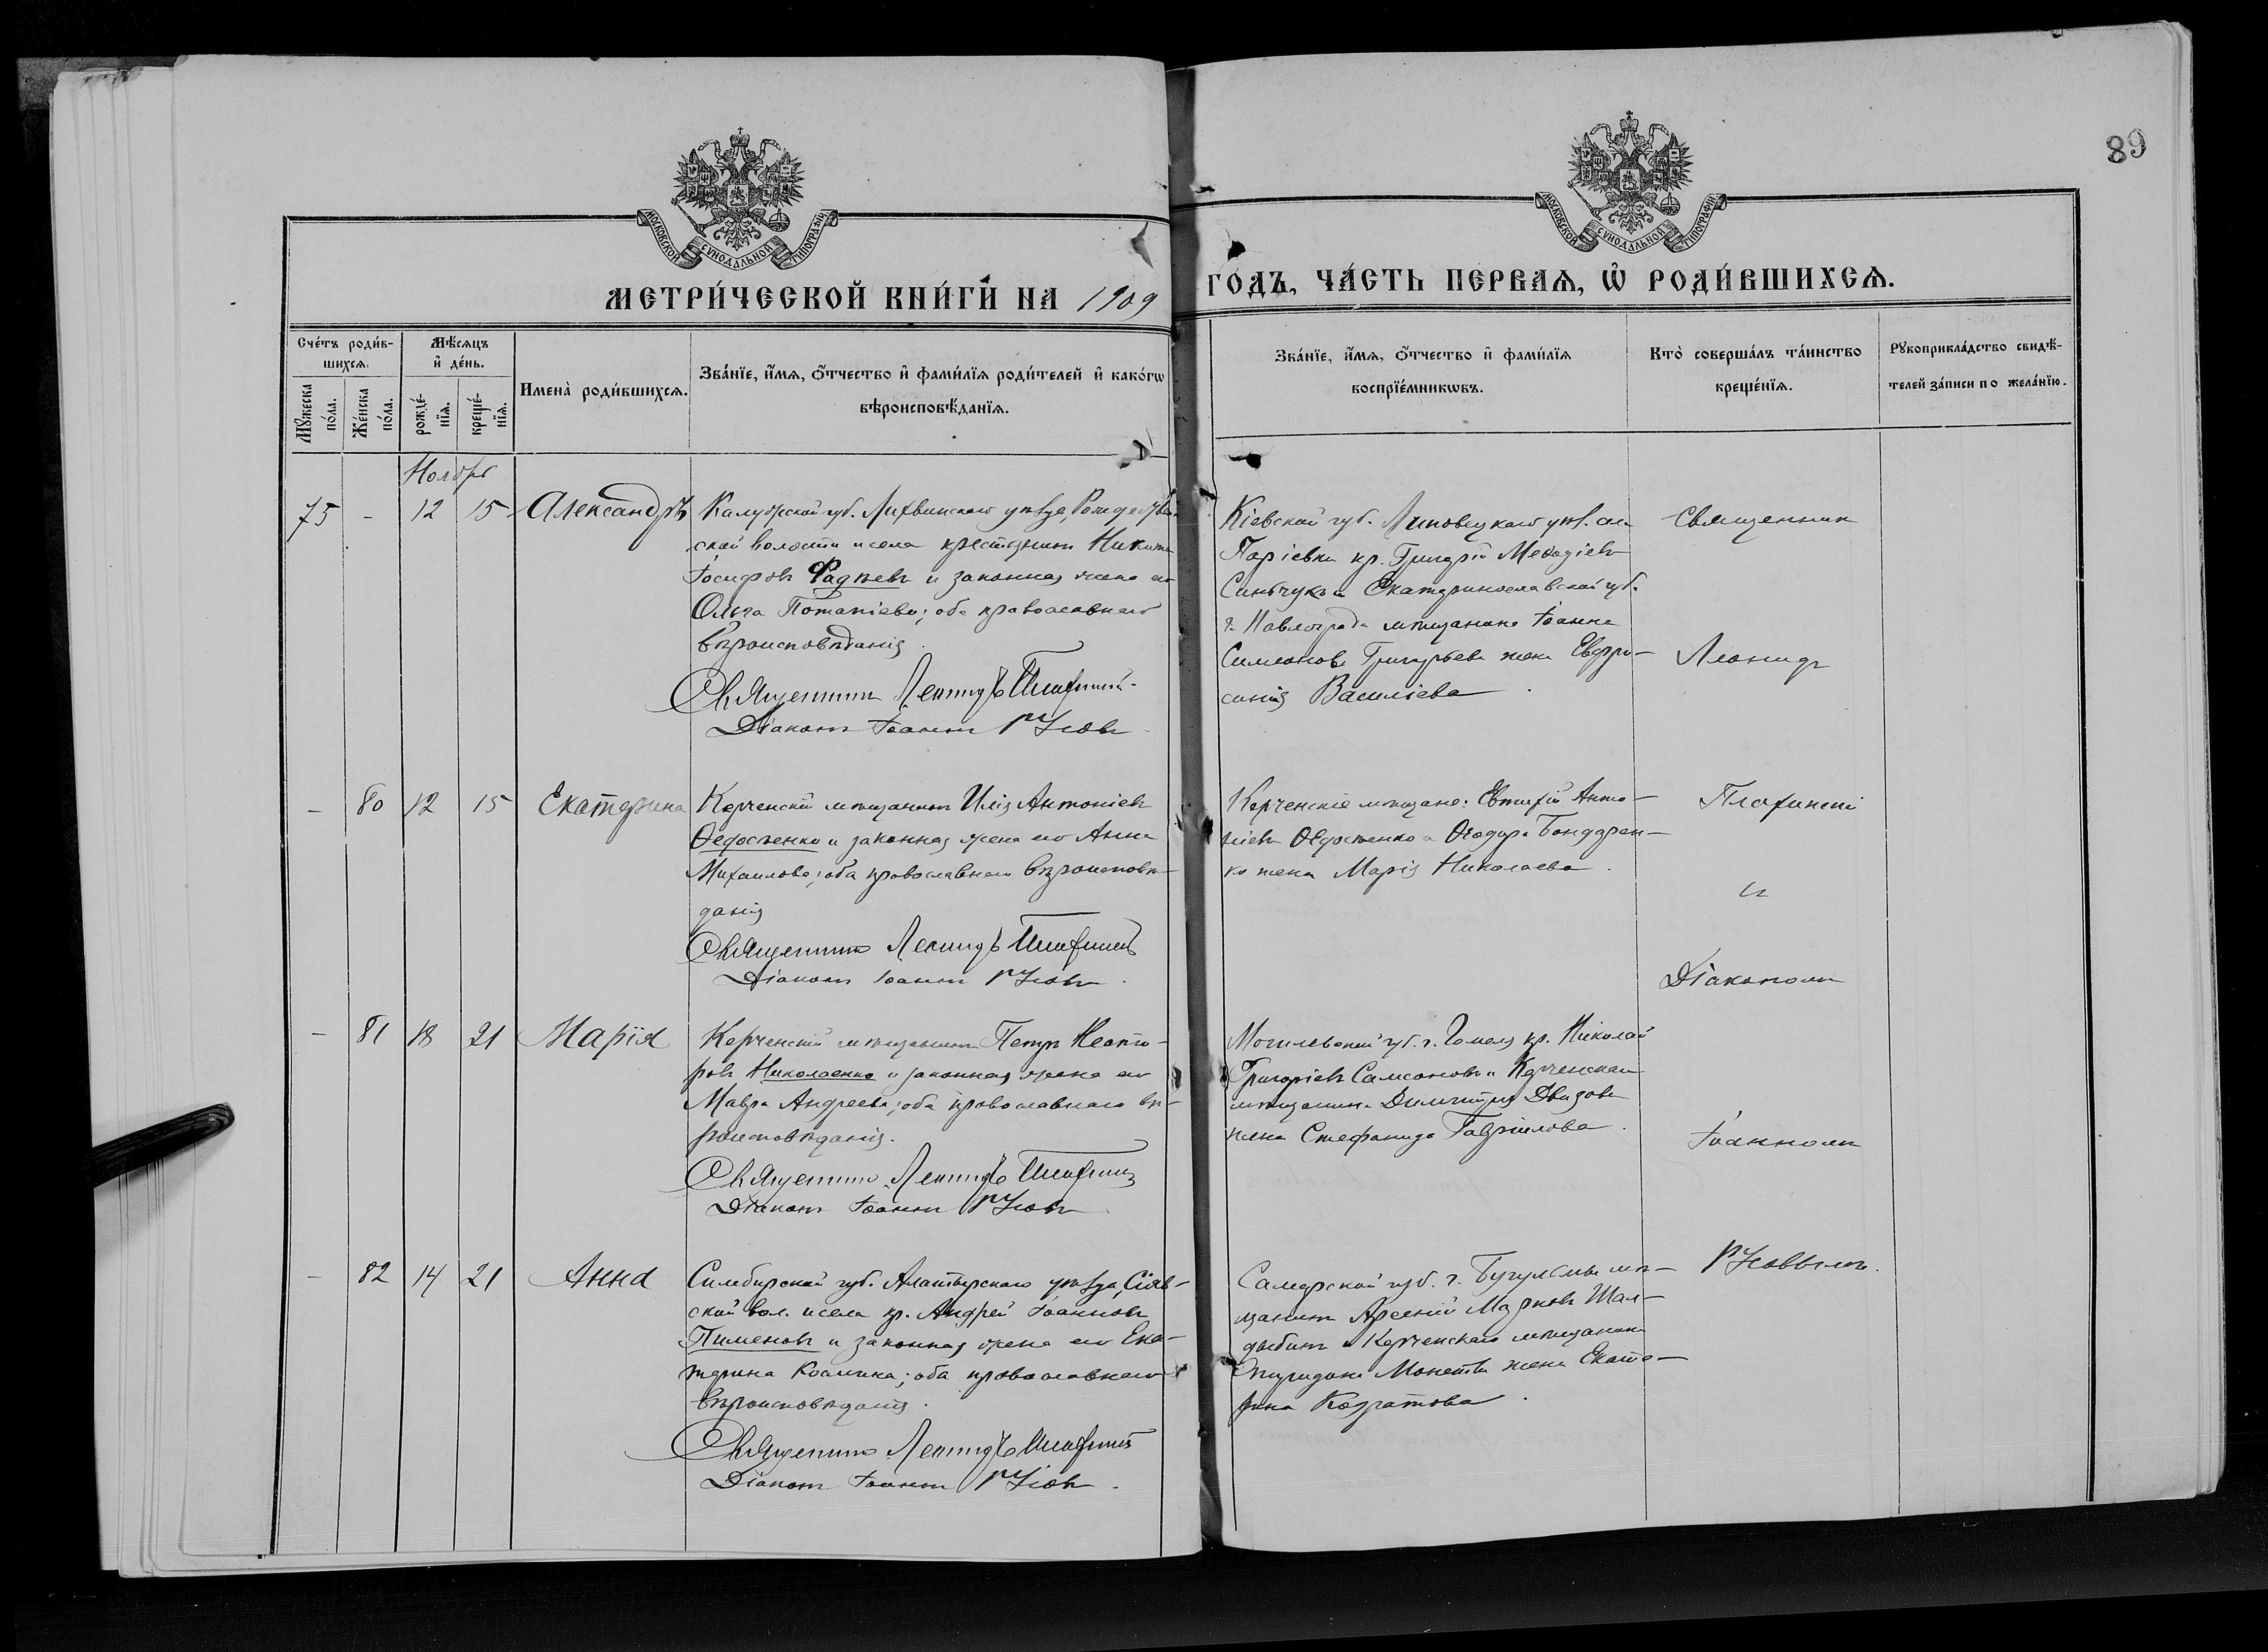 89
МОСКОВСКОЙ СѴНОДАЛЬНОЙ ТИПОГРАФІИ
МОСКОВСКОЙ СѴНОДАЛЬНОЙ ТИПОГРАФІИ
МЕТРИ́ЧЕСКОЙ КНИ́ГИ НА 1909 ГО́ДЪ, ЧА́СТЬ ПЕ́РВАЯ, Ѡ РОДИ́ВШИХСЯ.
Сче́тъ роди́вшихся.
Мꙋ́жеска по́ла.
Же́нска по́ла.
Мѣ́сяцъ и де́нь.
рожде́нїя.
креще́нїя.
Имена̀ роди́вшихся.
Зва́нїе, и́мя, ѻ҆́тчество и фами́лїя роди́телей и како́гѡ
вѣроисповѣ́данїя.
Зва́нїе, и́мя, ѻ҆́тчество и фами́лїя
воспрїе́мникѡвъ.
Кто̀ соверша́лъ та́инство
креще́нїя.
Рꙋкоприкла́дство свидѣ́-
телей за́писи по жела́нїю.
Ноябрь
75 - 12 15 Александръ
Калужской губ. Лихвинскаго уѣзда, Рождествен
ской волости и села крестьянинъ Никита
Іосифовъ Фадѣевъ и законная жена его
Ольга Потапіева; оба православнаго
вѣроисповѣданія.
Священникъ Леонидъ
Діаконъ Іоаннъ Русовъ
Кіевской губ. Липовецкаго уѣз. села
Паріевки кр. Григорій Меѳодіевъ
Синьчукъ и Екатеринославской губ.
г. Павлограда мѣщанина Іоанна
Симеонова Григорьева жена Евфро-
синія Василіева
Священникъ
Леонидъ
- 80 12 15 Екатерина
Керченскій мѣщанинъ Илія Антоніевъ
Ѳедосѣенко и законная жена его Анна
Михаилова; оба православнаго вѣроисповѣ-
данія
Священникъ Леонидъ
Діаконъ Іоаннъ Русовъ
Керченскіе мѣщане: Евтихій Анто-
ніевъ Ѳедосѣенко и Ѳеодора Бондарен-
ко жена Марія Николаева.
съ
Діакономъ
- 81 18 21 Марія
Керченскій мѣщанинъ Петръ Нести-
ровъ Николаенко и законная жена его
Мавра Андреева; оба православнаго вѣ-
роисповѣданія.
Священникъ Леонидъ
Діаконъ Іоаннъ Русовъ
Могилевской губ. г. Гомеля кр. Николай
Григоріевъ Самсоновъ и Керченскаго
мѣщанина Димитрія
жена Стефанида Гавріилова.
Іоанномъ
- 82 14 21 Анна
Симбирской губ. Алатырскаго уѣзда, Сіяв-
ской вол. и села кр. Андрей Іоанновъ
Пименовъ и законная жена его Ека-
терина Косьмина; оба православнаго
вѣроисповѣданія.
Священникъ Леонидъ
Діаконъ Іоаннъ Русовъ.
Самарской губ. г. Бугульмы мѣ-
щанинъ Арсеній Марковъ Шал-
дыбинъ и Керченскаго мѣщанина
Спиридона жена Екате-
рина
Русовымъ.